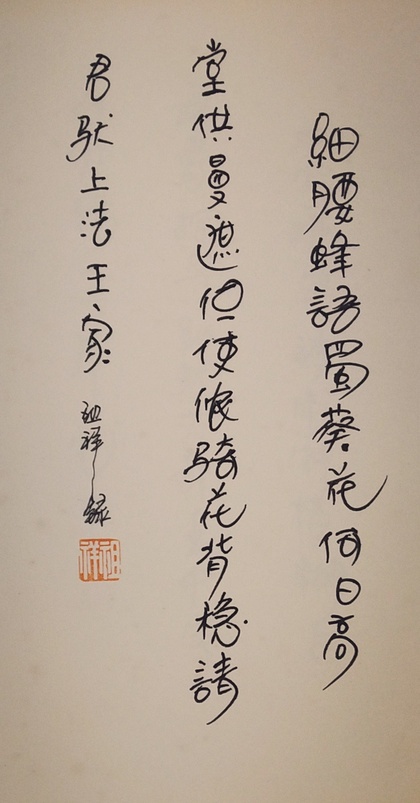 細腰蜂語蜀葵花何日高
堂供曼遮但使儂騎花背穩請
君馱上法王家
祖祥錄
祖祥